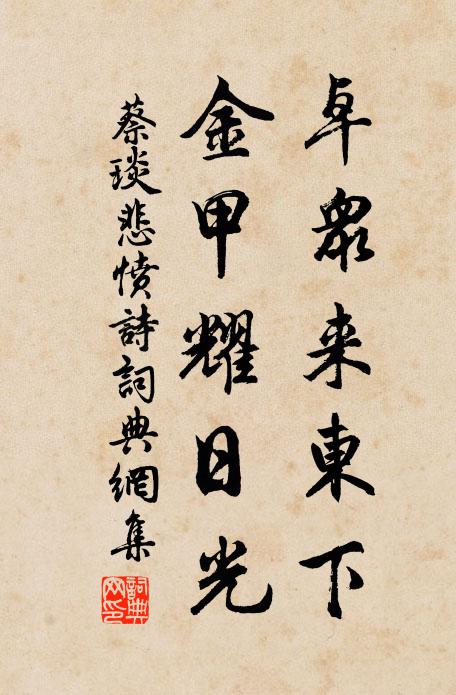 卓眾来東下
金甲耀日光
蔡琰悲憤詩詞典網集
詞典網印